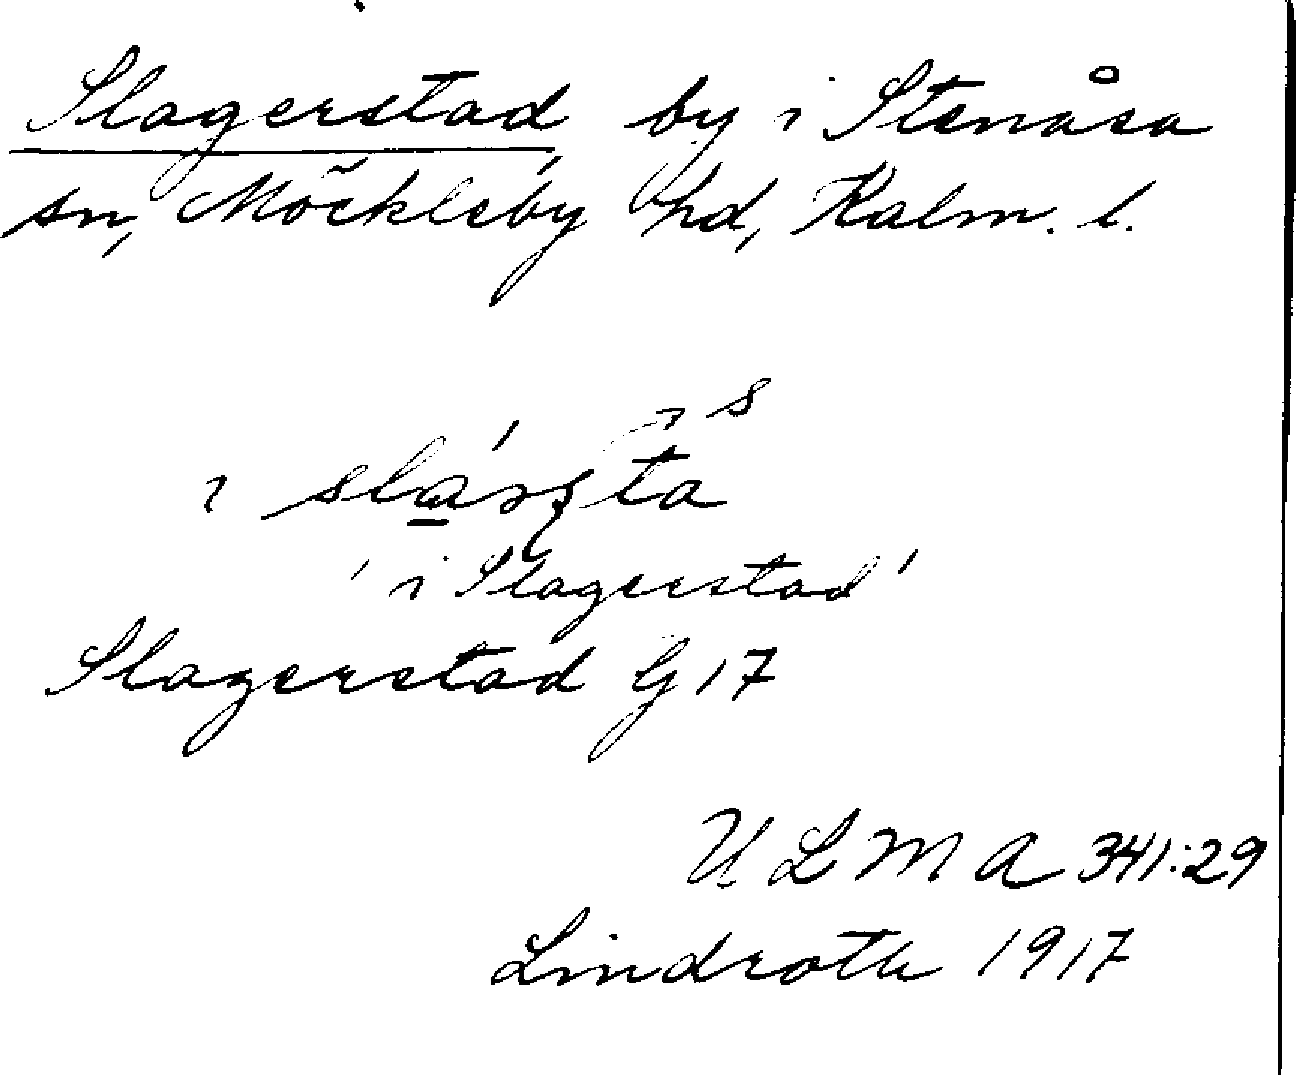 Slagerstad by i Stenåsa
sn, Möckleby hd, Kalm. l.
'i Slagerstad'
Slagerstad G 17
ULMA 341:29
Lindroth 1917